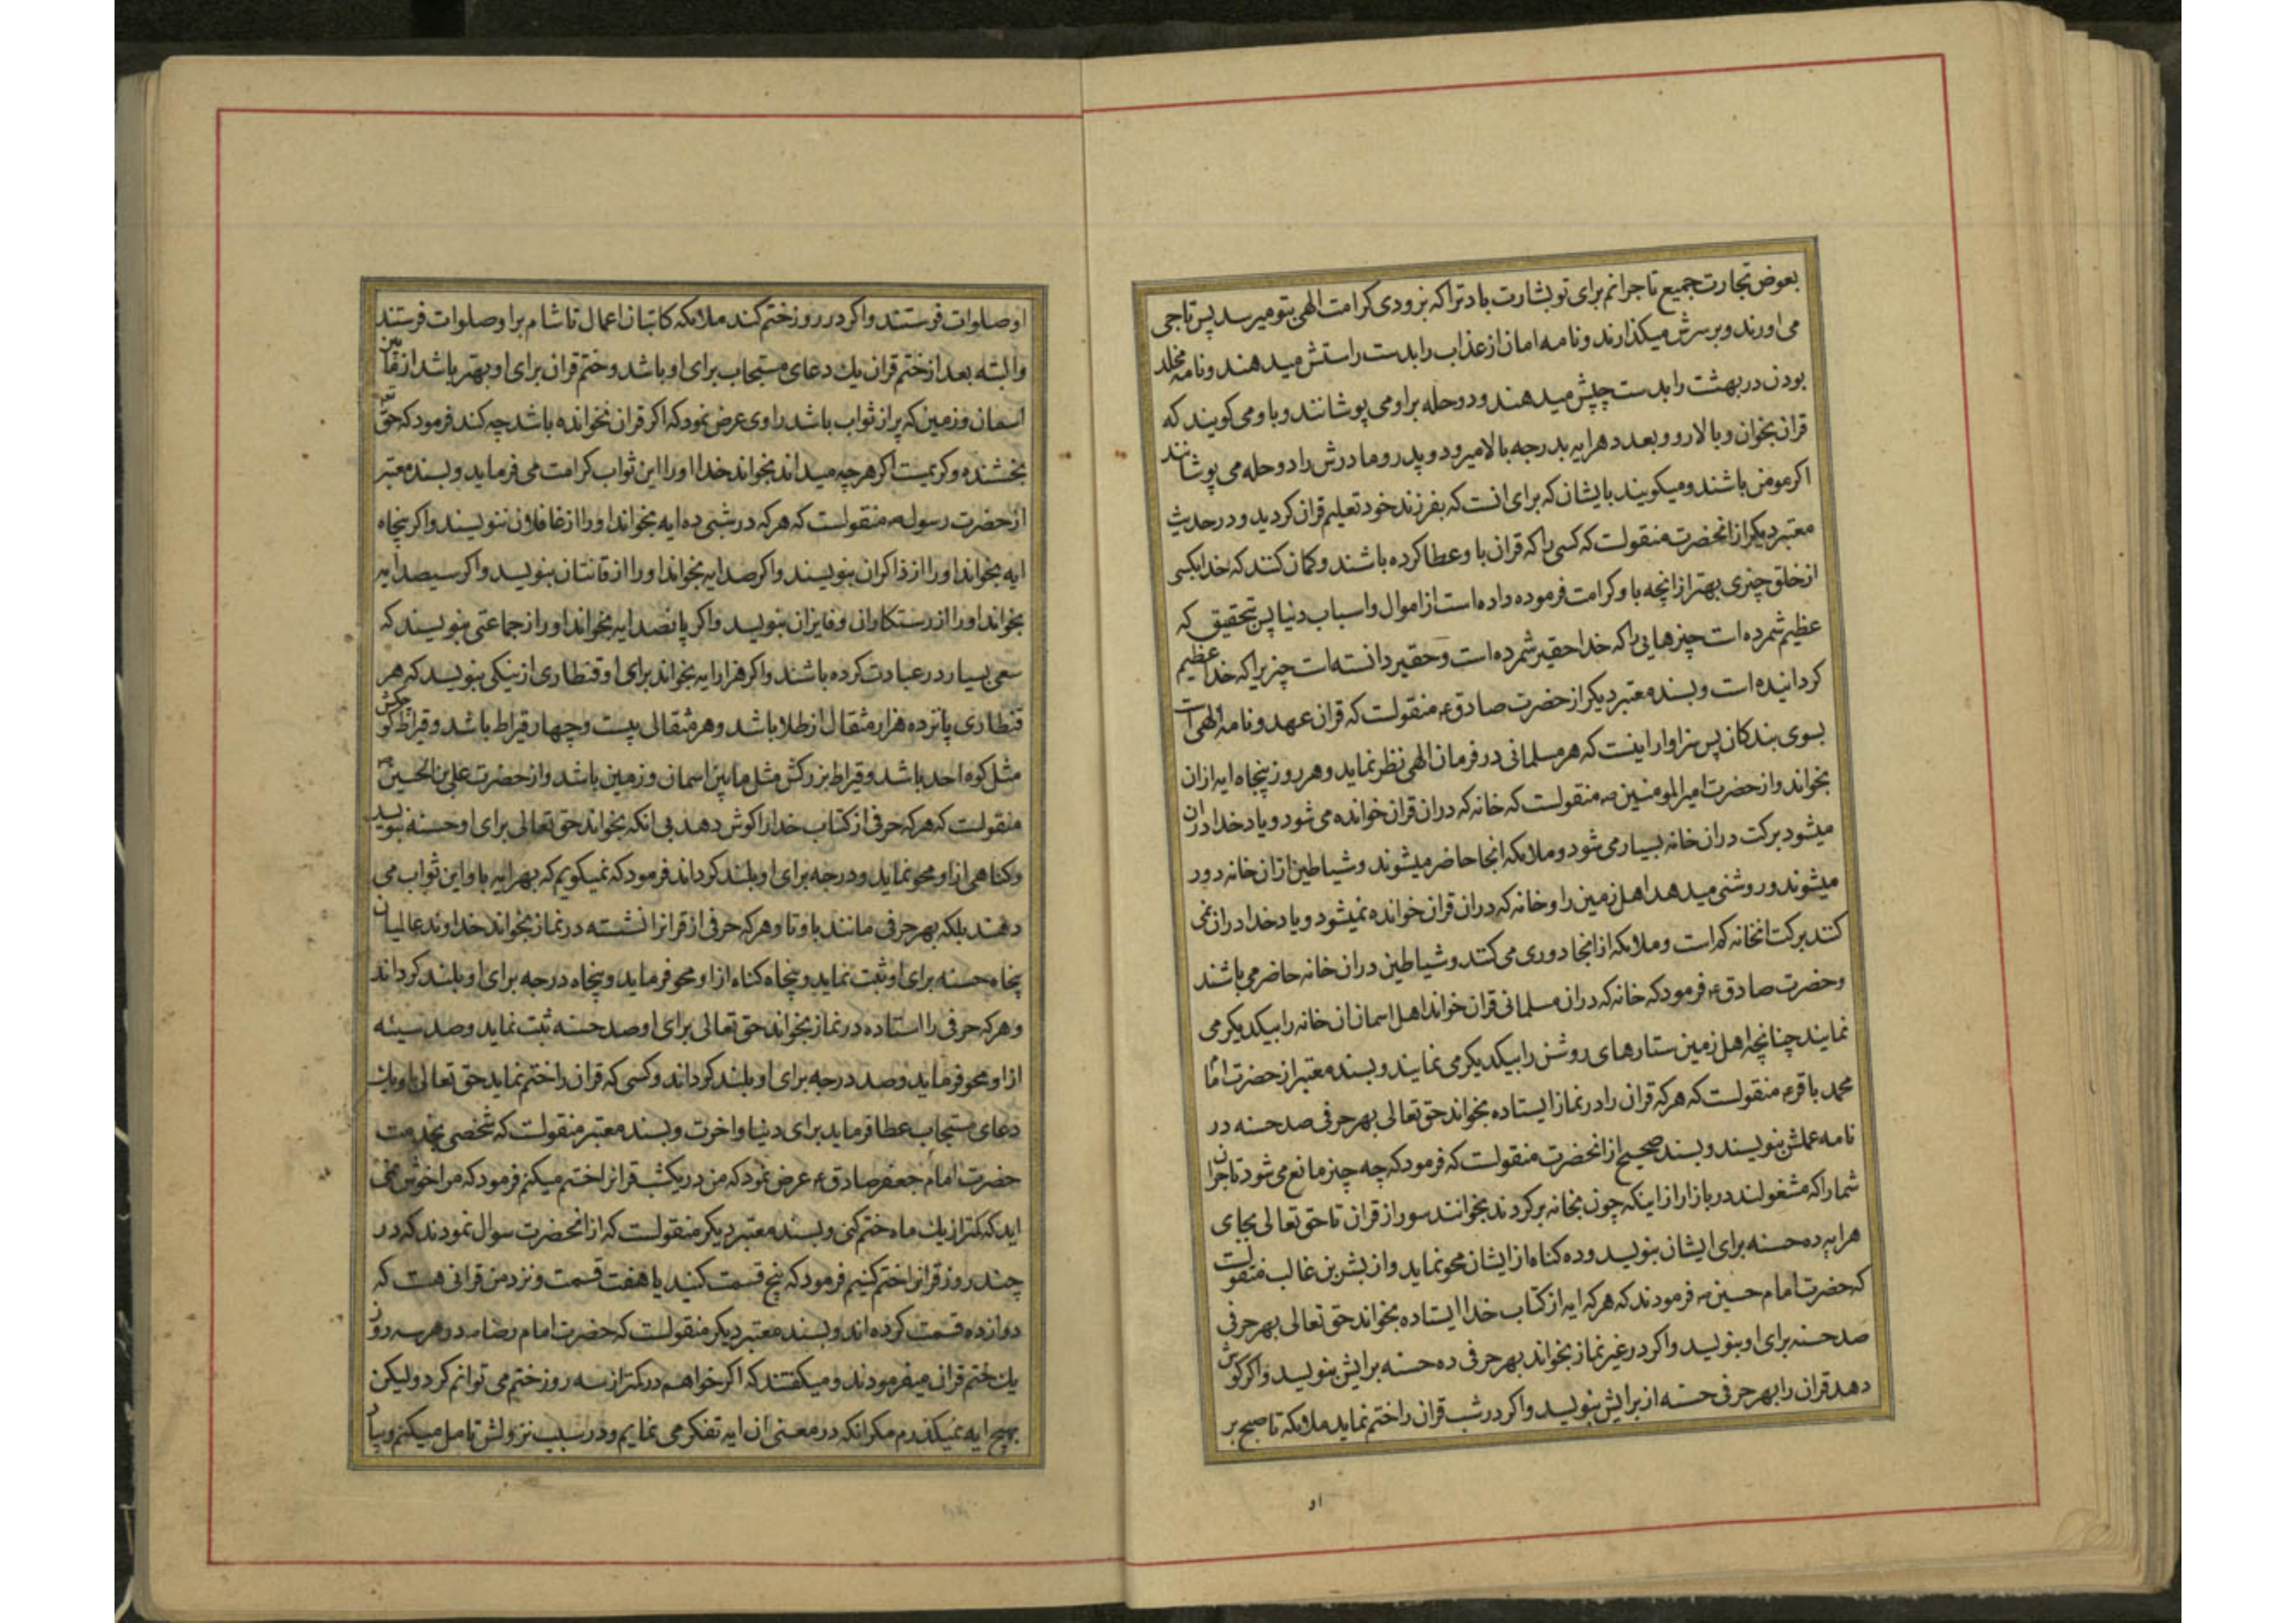 بعوض تجارت جمیع تاجرانم برای تو بشارت باد ترا که بزودی کرامت الهی بتو میرسد پس تاجی
می اورند و بر سرش میکذارند و نامه امان از عذاب را بدست راستش میدهند و نامه مخلد
بودن در بهشت را بدست چپش میدهند و دو حله براو می پوشانند و باو می کویند که
قران بخوان و بالا رو و بعدد هر ایه بدرجه بالا میرود و پدر و مادرش را دو حله می پوشانند
اکر مومن باشند و میکویند بایشان که برای انست که بفرزند خود تعلیم قران کردید و در حدیث
معتبر دیکر از انحضرت منقولست که کسی را که قران باو عطا کرده باشند و کمان کنند که خدا بکسی
از خلق چیزی بهتر از انچه باو کرامت فرموده داده است از اموال و اسباب دنیا پس بتحقیق که
عظیم شمرده است چیزهایی را که خدا حقیر شمرده است و حقیر دانسته است چیزیرا که خدا عظیم
کردانیده است و بسند معتبر دیکر از حضرت صادق ع منقولست که قران عهد و نامه الهی است
بسوی بندکان پس سزاوار اینست که هر مسلمانی در فرمان الهی نظر نماید و هر روز پنجاه ایه ازان
بخواند و از حضرت امیرالمومنین ص منقولست که خانه که دران قران خوانده می شود و یاد خدا دران
میشود برکت دران خانه بسیار می شود و ملائکه انجا حاضر میشوند و شیاطین ازان خانه دور
میشوند و روشنی میدهد اهل زمین را و خانه که دران قران خوانده نمیشود و یاد خدا دران نمی
کنند برکت انخانه کم است و ملائکه از انجا دوری می کنند و شیاطین دران خانه حاضر می باشند
و حضرت صادق ع فرمود که خانه که دران مسلمانی قران خواند اهل اسمان ان خانه را بیکدیکر می
نمایند چنانچه اهل زمین ستارهای روشن را بیکدیکر می نمایند و بسند معتبر از حضرت امام
محمد باقر ع منقولست که هر که قران را در نماز ایستاده بخواند حق تعالی بهر حرفی صد حسنه در
نامه عملش بنویسند و بسند صحیح از انحضرت منقولست که فرمود که چه چیز مانع می شود تاجران
شما را که مشغولند در بازار از اینکه چون بخانه بر کردند بخوانند سور از قران تا حق تعالی بجای
هر ایه ده حسنه برای ایشان بنویسد و ده کناه از ایشان محو نماید و از بشر بن غالب منقولست
که حضرت امام حسین ص فرمودند که هر که ایه از کتاب خدا ایستاده بخواند حق تعالی بهر حرفی
صد حسنه برای او بنویسد و اکر در غیر نماز بخواند بهر حرفی ده حسنه برایش بنویسد و اکر کوش
دهد قران را بهر حرفی حسنه از برایش بنویسد و اکر در شب قران را ختم نماید ملائکه تا صبح بر
او
او صلوات فرستند و اکر در روز ختم کند ملائکه کاتبان اعمال تا شام براو صلوات فرستند
والبته بعد از ختم قران یك دعای مستجاب برای او باشد و ختم قران برای او بهتر باشد از مابین
اسمان و زمین که پر از ثواب باشد راوی عرض نمود که اکر قران نخوانده باشد چه کند فرمود که حق
بخشنده و کریمست اکر هر چه میداند بخواند خدا او را این ثواب کرامت می فرماید و بسند معتبر
از حضرت رسول ص منقولست که هر که در شبی ده ایه بخواند او را از غافلان ننویسند و اکر پنجاه
ایه بخواند او را از ذاکران بنویسند و اکر صد ایه بخواند او را از قانتان بنویسد و اکر سیصد ایه
بخواند او را از رستکاران و فایزان بنویسد و اکر پانصد ایه بخواند او را از جماعتی بنویسند که
سعی بسیار در عبادت کرده باشند و اکر هزار ایه بخواند برای او قنطاری از نیکی بنویسد که هر
قنطاری پانزده هزار مثقال از طلا باشد و هر مثقالی بیست و چهار قیراط باشد و قیراط کوچکش
مثل کوه احد باشد و قیراط بزرکش مثل مابین اسمان و زمین باشد و از حضرت علی بن الحسین ص
منقولست که هر که حرفی از کتاب خدا را کوش دهد بی انکه بخواند حق تعالی برای او حسنه بنویسد
و کناهی از او محو نماید و درجه برای او بلند کرداند فرمود که نمیکویم که بهر ایه باو این ثواب می
دهند بلکه بهر حرفی مانند با و تا و هر که حرفی از قرانرا نشسته در نماز بخواند خداوند عالمیان
پنجاه حسنه برای او ثبت نماید و پنجاه کناه از او محو فرماید و پنجاه درجه برای او بلند کرداند
و هر که حرفی را استاده در نماز بخواند حق تعالی برای او صد حسنه ثبت نماید و صد سیئه
از او محو فرماید و صد درجه برای او بلند کرداند و کسی که قران را ختم نماید حق تعالی باو یك
دعای مستجاب عطا فرماید برای دنیا و اخرت و بسند معتبر منقولست که شخصی بخدمت
حضرت امام جعفر صادق ع عرض نمود که من در یکشب قرانرا ختم میکنم فرمود که مرا خوش نمی
اید که کمتر از یك ماه ختم کنی و بسند معتبر دیکر منقولست که از انحضرت سوال نمودند که در
چند روز قرانرا ختم کنیم فرمود که پنج قسمت کنید یا هفت قسمت و نزد من قرانی هست که
دوازده قسمت کرده اند و بسند معتبر دیکر منقولست که حضرت امام رضا ص در هر سه روز
یك ختم قران میفرمودند و میکفتند که اکر خواهم در کمتر از سه روز ختم می توانم کرد ولیکن
بهیچ ایه نمیکذرم مکر انکه در معنی ان ایه تفکر می نمایم و در سبب نزولش تامل میکنم و بیاد